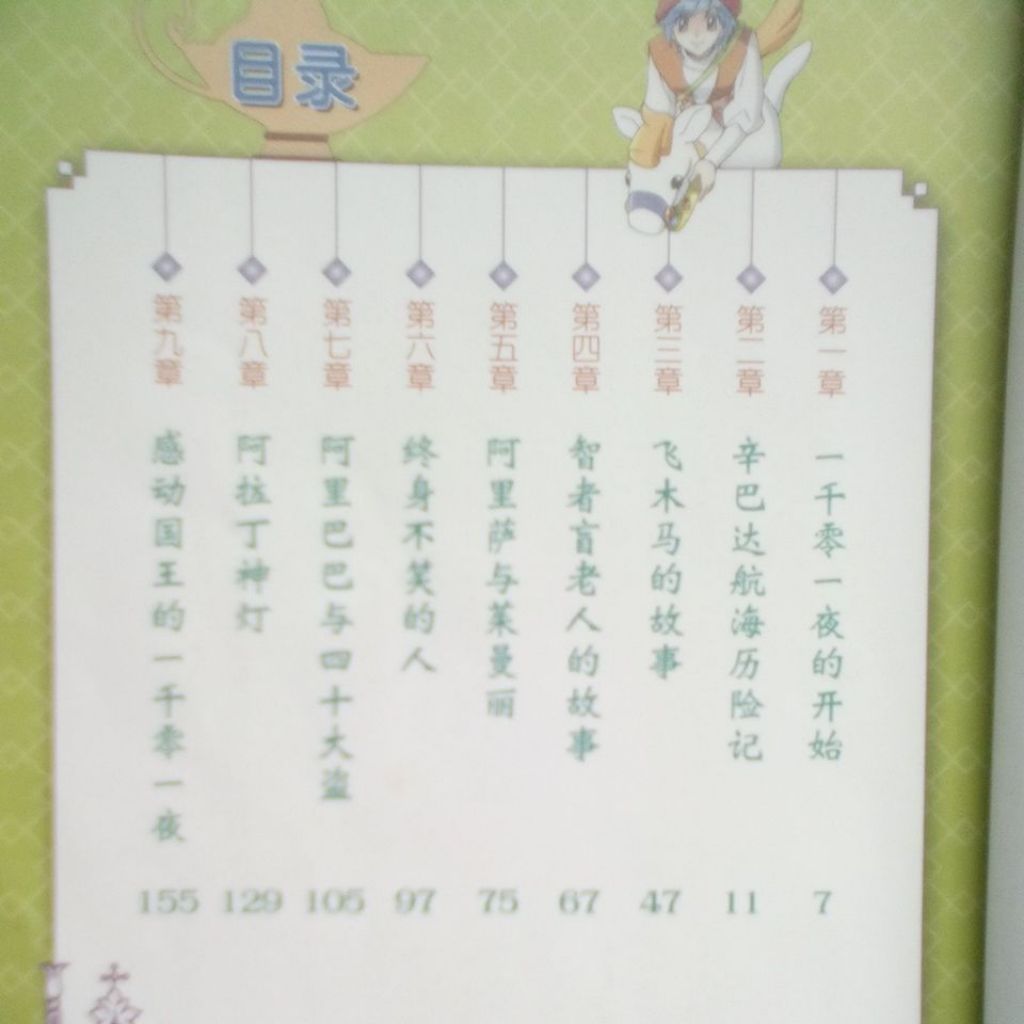 目录
第一章 一千零一夜的开始 7
第二章 辛巴达航海历险记 11
第三章 飞木马的故事 47
第四章 智者盲老人的故事 67
第五章 阿里萨与莱曼丽 75
第六章 终身不笑的人 97
第七章 阿里巴巴与四十大盗 105
第八章 阿拉丁神灯 129
第九章 感动国王的一千零一夜 155